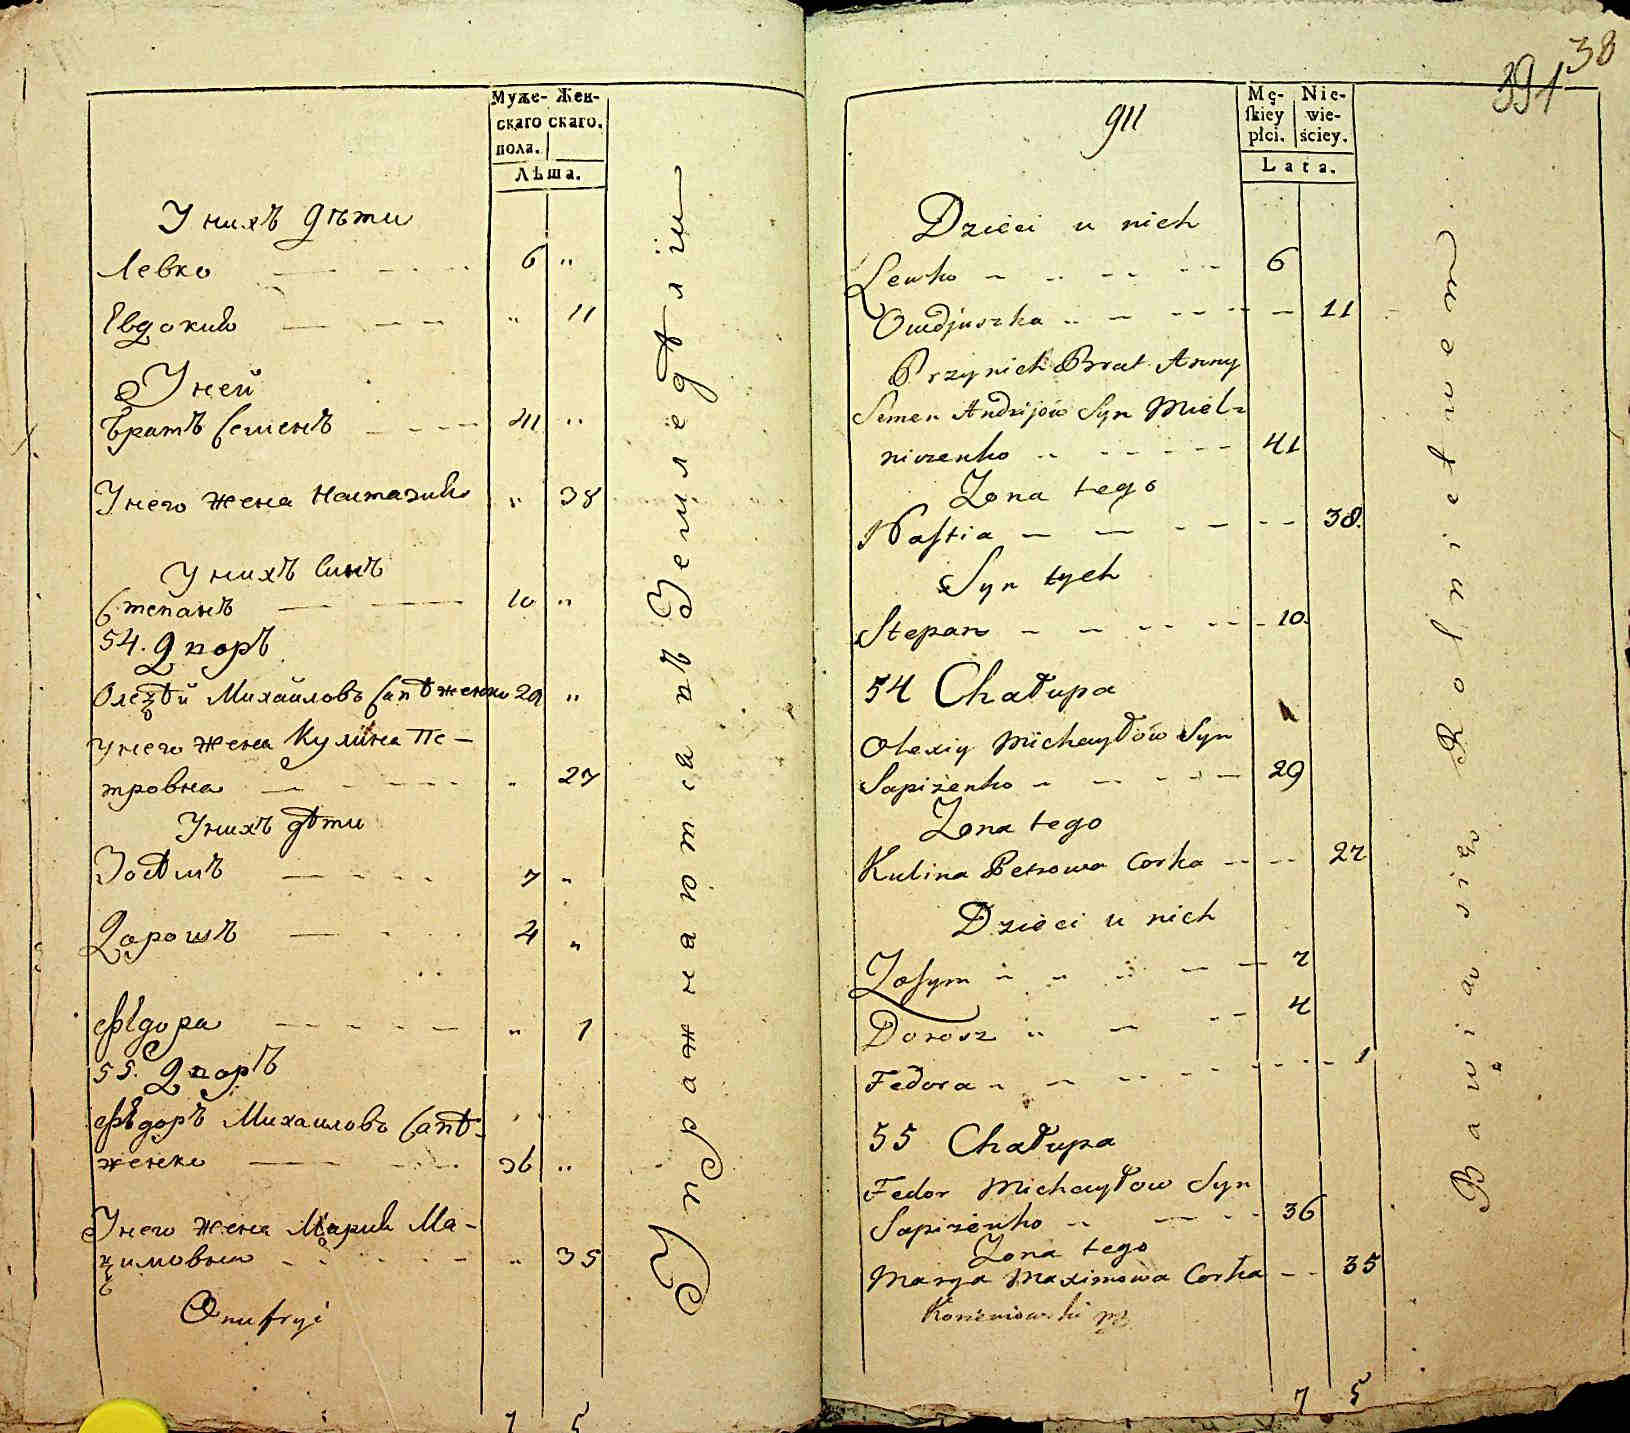 Муже- Жен-
скаго скаго.
пола.
Лѣта.
У нихъ дѣти
Левко 6 "
Евдокия " 11
У ней
братъ Семенъ 41 "
У него жена Настазия " 38
У нихъ синъ
Степанъ 10 "
54. Дворъ
Олеѯѣй Михайловъ Сапѣженко 29 "
У него жена Кулина Пе-
тровна " 27
У нихъ дѣти
Зосѣмъ 7 "
Дорошъ 4 "
Фѣдора " 1
55. Дворъ
Фѣдоръ Михаиловъ Сапѣ-
женко 36 "
У него жена Мария Ма-
ѯимовна " 35
Onufryi
7 5
Упражнаются въ Земледѣліи
38
391
911
Mę- Nie-
skiey wie-
płci. ściey.
Lata.
Dzieci u nich
Lewko 6
Owdjuszka 11
Przy nich Brat Anny
Semen Andrijów Syn Miel-
niczenko 41
Żona tego
Nastia 38.
Syn tych
Stepan 10.
54 Chałupa
Olexiy Michayłów Syn
Sapiżenko 29
Żona tego
Kulina Petrowa Corka 27
Dzieci u nich
Zosym 7
Dorosz 4
Fedora 1
55 Chałupa
Fedor Michayłow Syn
Sapiżenko 36
Żona tego
Marya Maximowa Corka 35
Korzeniowski
7 5
Bawią się Rolnictwem